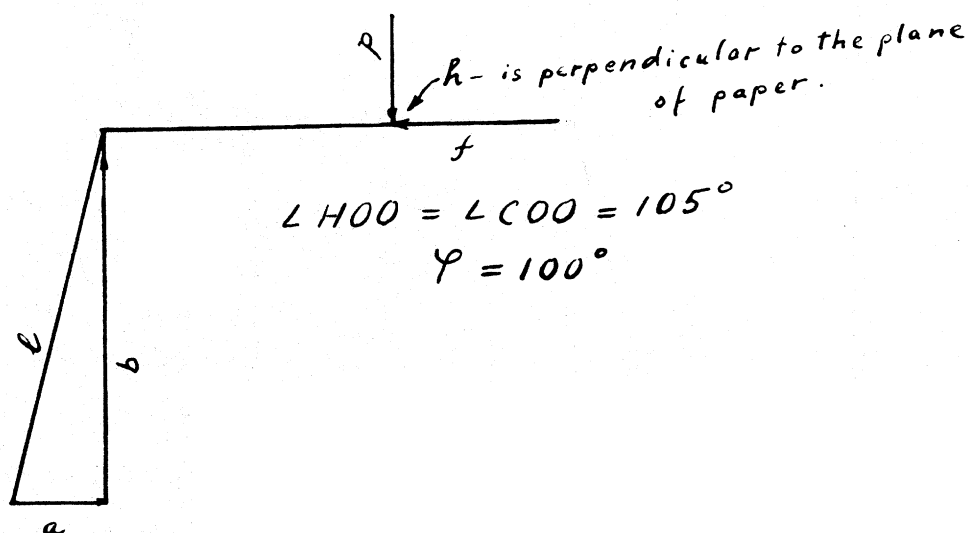 p
h - is perpendicular to the plane
of paper.
f
∠ HOO = ∠ COO = 105°
φ = 100°
l
b
a